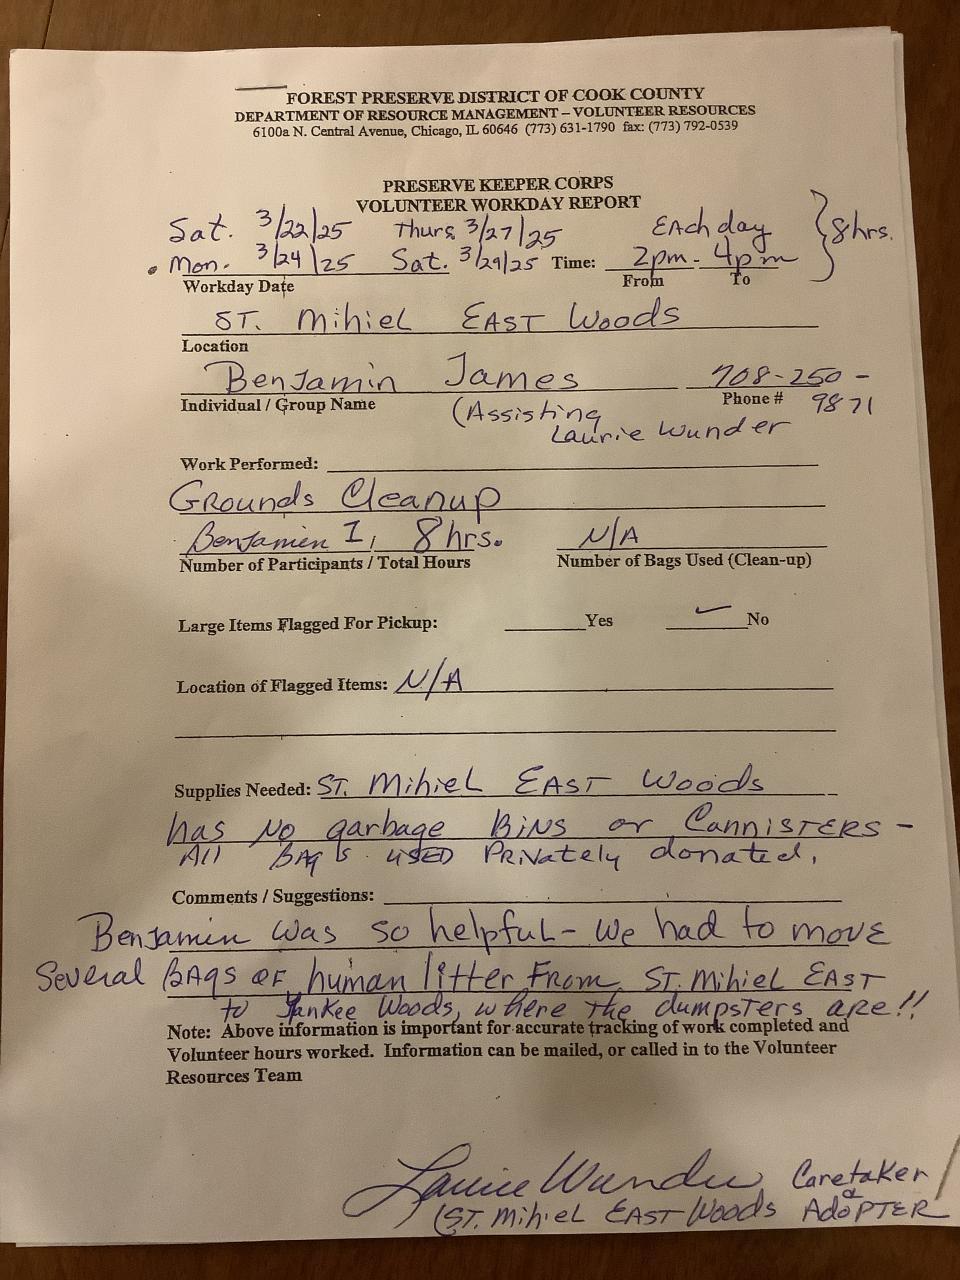 FOREST PRESERVE DISTRICT OF COOK COUNTY
DEPARTMENT OF RESOURCE MANAGEMENT – VOLUNTEER RESOURCES
6100a N. Central Avenue, Chicago, IL 60646 (773) 631-1790 fax: (773) 792-0539
PRESERVE KEEPER CORPS
VOLUNTEER WORKDAY REPORT
Sat. 3/22/25 Thurs 3/27/25 Each day } 8hrs.
Mon. 3/24/25 Sat. 3/29/25 Time: 2pm - 4pm
Workday Date From To
ST. Mihiel EAST Woods
Location
Benjamin James 708-250-
Individual / Group Name Phone # 9871
(Assisting
Laurie Wunder
Work Performed:
Grounds Cleanup
Benjamin 1, 8hrs. N/A
Number of Participants / Total Hours Number of Bags Used (Clean-up)
Large Items Flagged For Pickup: Yes ✓ No
Location of Flagged Items: N/A
Supplies Needed: ST. Mihiel EAST Woods
has No garbage BINS or CANNISTERS -
All BAgs USED Privately donated.
Comments / Suggestions:
Benjamin was so helpful - We had to move
Several BAgs of human litter From ST. Mihiel EAST
to Yankee Woods, where the dumpsters are!!
Note: Above information is important for accurate tracking of work completed and
Volunteer hours worked. Information can be mailed, or called in to the Volunteer
Resources Team
Laurie Wunder Caretaker
&
(ST. Mihiel EAST Woods ADOPTER